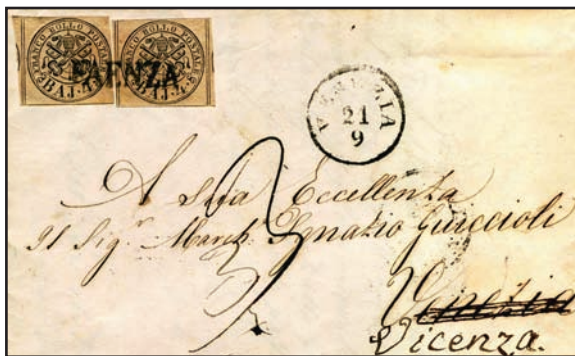 FRANCO BOLLO POSTALE
BAJ. 4
FRANCO BOLLO POSTALE
BAJ. 4
FAENZA
VENEZIA
21
9
A Sua Eccellenza
Il Sig.r March. Ignazio Guiccioli
3
Venezia
Vicenza.